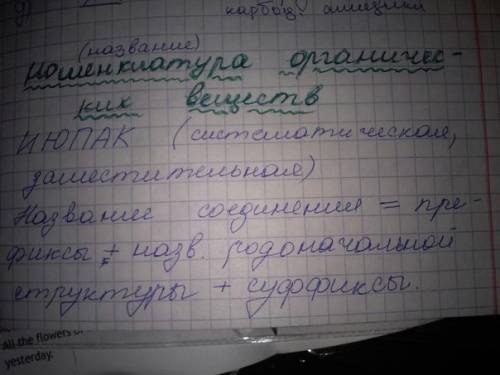 карбоц.
(название)
Номенклатура органичес-
ких веществ
ИЮПАК (систематическая,
заместительная)
Название соединения = пре-
фиксы + назв. родоначальной
структуры + суффиксы.
All the flowers of
yesterday.